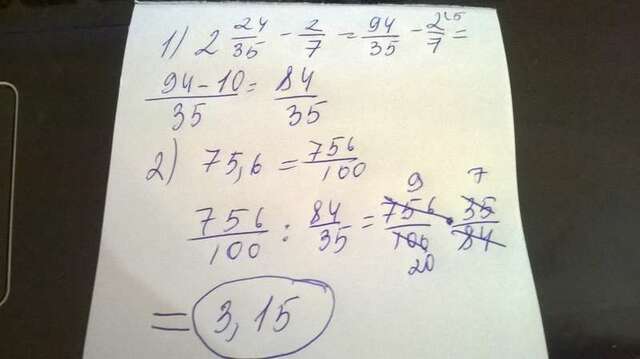 1) 2 24/35 - 2/7 = 94/35 - 2/7 ^(5 =
(94 - 10)/35 = 84/35
2) 75,6 = 756/100
756/100 : 84/35 = 756/100 · 35/84
9 7
20
= 3,15